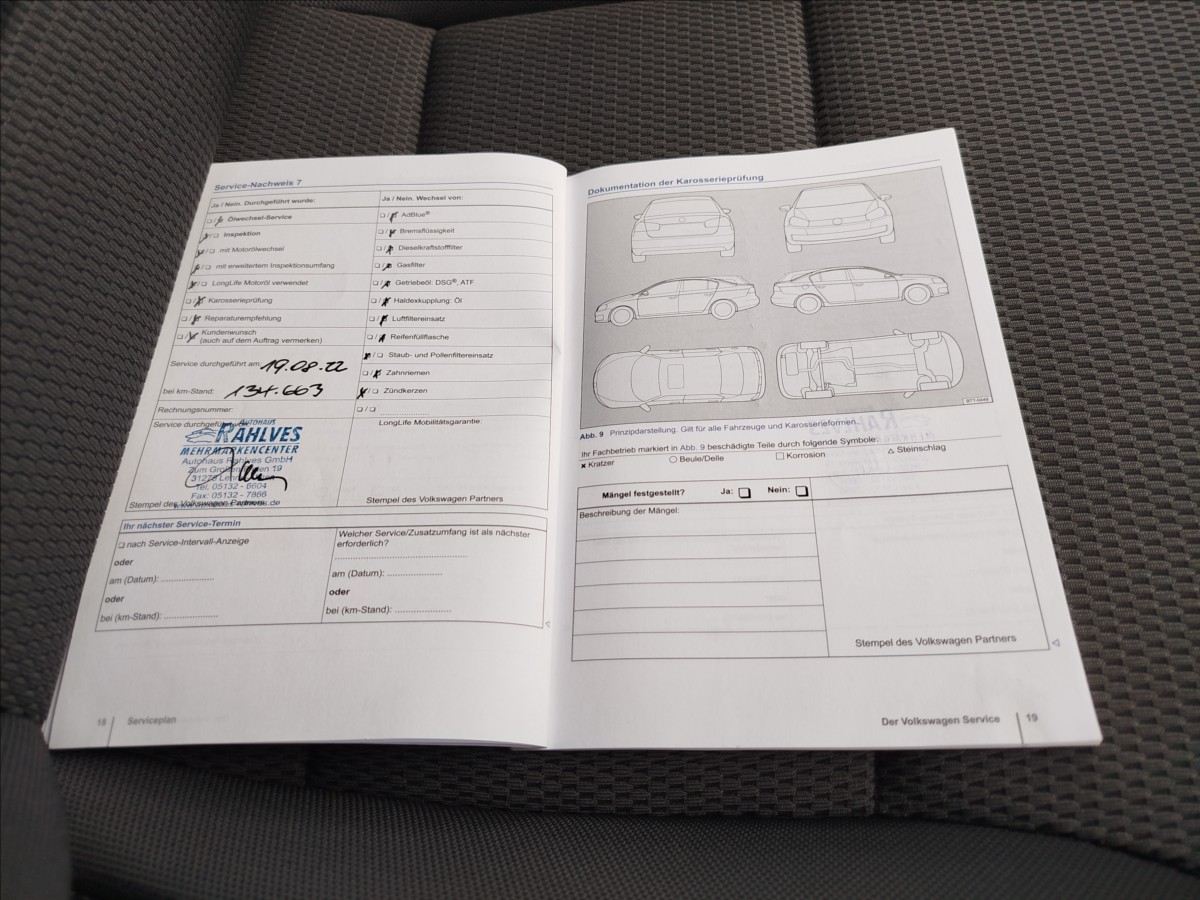 Service-Nachweis 7
Ja / Nein. Durchgeführt wurde:
❏/❏ Ölwechsel-Service
❏/❏ Inspektion
❏/❏ mit Motorölwechsel
❏/❏ mit erweitertem Inspektionsumfang
❏/❏ LongLife Motoröl verwendet
❏/❏ Karosserieprüfung
❏/❏ Reparaturempfehlung
❏/❏ Kundenwunsch
(auch auf dem Auftrag vermerken)
Service durchgeführt am: 19.08.22
bei km-Stand: 134.663
Rechnungsnummer:
Service durchgeführt
AUTOHAUS
RAHLVES
MEHRMARKENCENTER
Autohaus Rahlves GmbH
Zum Großen Freien 19
31275 Lehrte
Tel. 05132 - 6604
Fax: 05132 - 7866
Stempel des Volkswagen Partners
Ja / Nein. Wechsel von:
❏/❏ AdBlue®
❏/❏ Bremsflüssigkeit
❏/❏ Dieselkraftstofffilter
❏/❏ Gasfilter
❏/❏ Getriebeöl: DSG®, ATF
❏/❏ Haldexkupplung: Öl
❏/❏ Luftfiltereinsatz
❏/❏ Reifenfüllflasche
❏/❏ Staub- und Pollenfiltereinsatz
❏/❏ Zahnriemen
❏/❏ Zündkerzen
❏/❏ ....................
LongLife Mobilitätsgarantie:
Stempel des Volkswagen Partners
Ihr nächster Service-Termin
❏ nach Service-Intervall-Anzeige
oder
am (Datum): ....................
oder
bei (km-Stand): ....................
Welcher Service/Zusatzumfang ist als nächster
erforderlich?
am (Datum): ....................
oder
bei (km-Stand): ....................
18 Serviceplan
Dokumentation der Karosserieprüfung
Abb. 9 Prinzipdarstellung. Gilt für alle Fahrzeuge und Karosserieformen.
Ihr Fachbetrieb markiert in Abb. 9 beschädigte Teile durch folgende Symbole:
✖ Kratzer ○ Beule/Delle □ Korrosion △ Steinschlag
Mängel festgestellt? Ja: ❏ Nein: ❏
Beschreibung der Mängel:
Stempel des Volkswagen Partners
Der Volkswagen Service 19